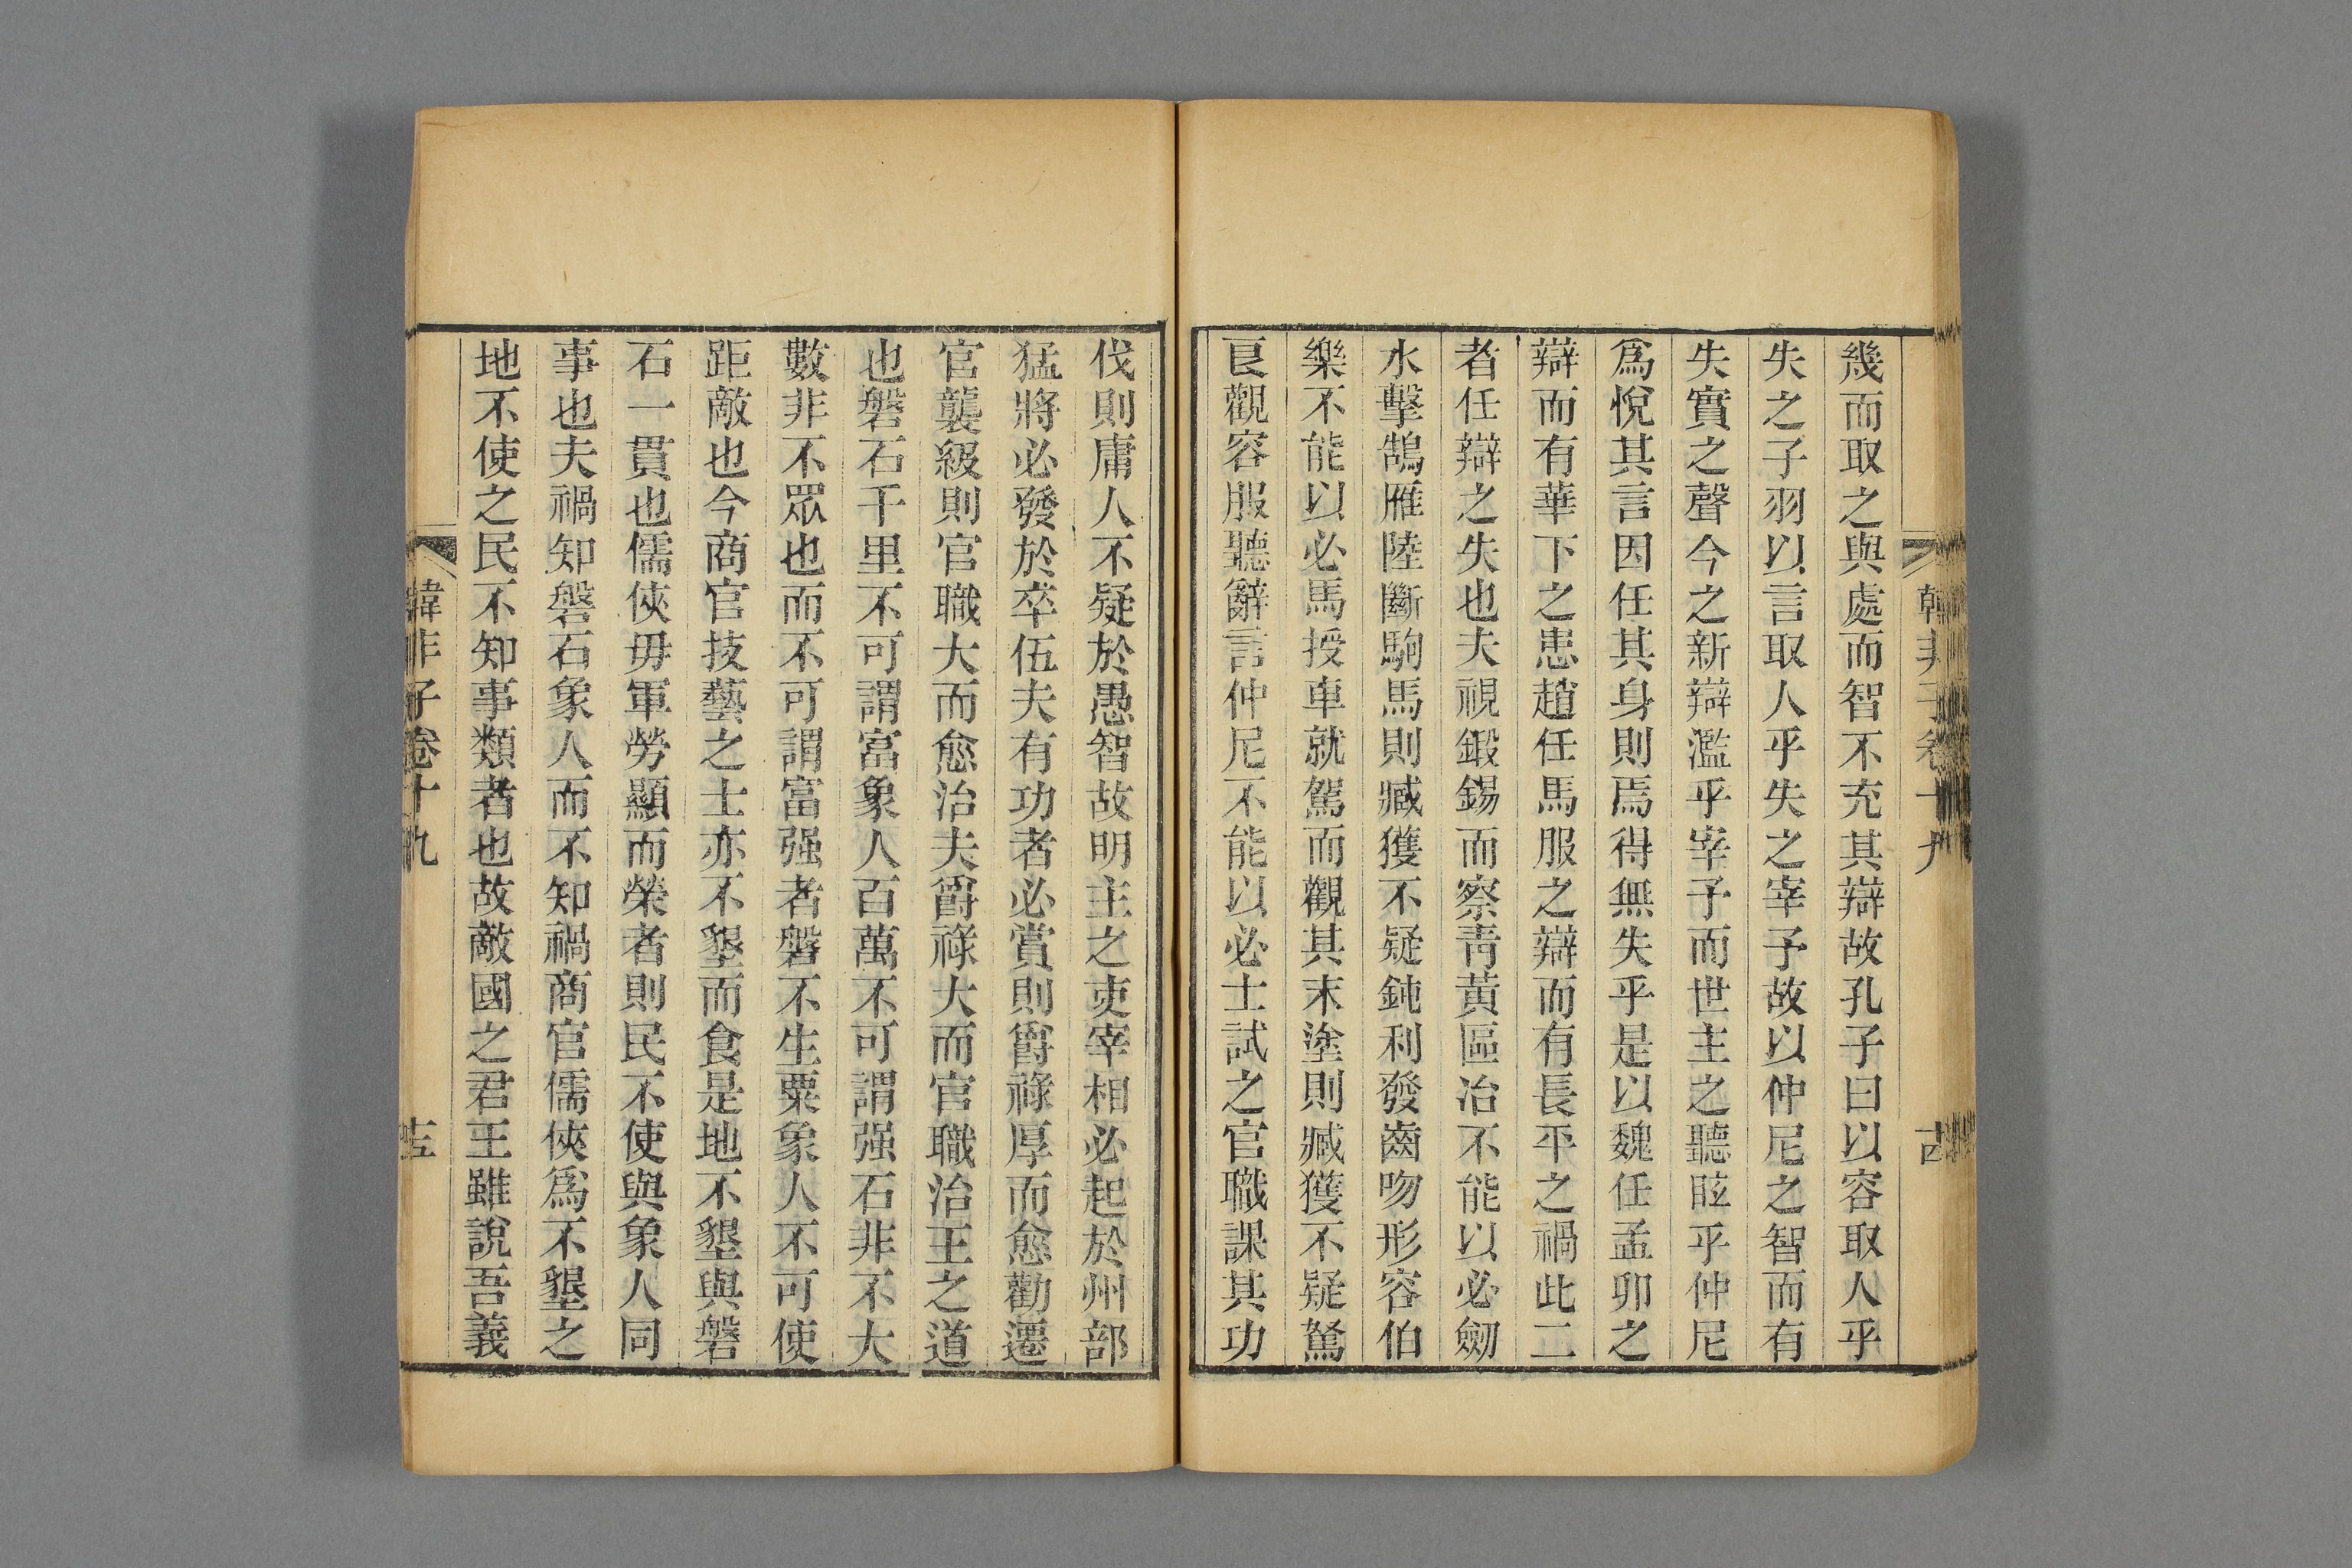 韓非子卷十九
幾而取之與處而智不充其辯故孔子曰以容取人乎
失之子羽以言取人乎失之宰予故以仲尼之智而有
失實之聲今之新辯濫乎宰予而世主之聽眩乎仲尼
爲悅其言因任其身則焉得無失乎是以魏任孟卯之
辯而有華下之患趙任馬服之辯而有長平之禍此二
者任辯之失也夫視鍛錫而察靑黃區冶不能以必劒
水擊鵠雁陸斷駒馬則臧獲不疑鈍利發齒吻形容伯
樂不能以必馬授車就駕而觀其末塗則臧獲不疑駑
良觀容服聽辭言仲尼不能以必士試之官職課其功
伐則庸人不疑於愚智故明主之吏宰相必起於州部
猛將必發於卒伍夫有功者必賞則爵祿厚而愈勸遷
官襲級則官職大而愈治夫爵祿大而官職治王之道
也磐石千里不可謂富象人百萬不可謂强石非不大
數非不眾也而不可謂富强者磐不生粟象人不可使
距敵也今商官技藝之士亦不墾而食是地不墾與磐
石一貫也儒俠毋軍勞顯而榮者則民不使與象人同
事也夫禍知磐石象人而不知禍商官儒俠爲不墾之
地不使之民不知事類者也故敵國之君王雖說吾義
韓非子卷十九